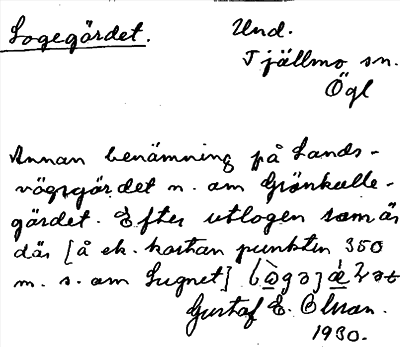 Logegärdet.
Und.
Tjällmo sn.
Ögl
Annan benämning på Lands-
vägsgärdet n. om Grönkulle-
gärdet. Efter utlogen som är
där [å ek. kartan punkten 350
m. s. om Lugnet]
Gustaf E. Olsson.
1930.